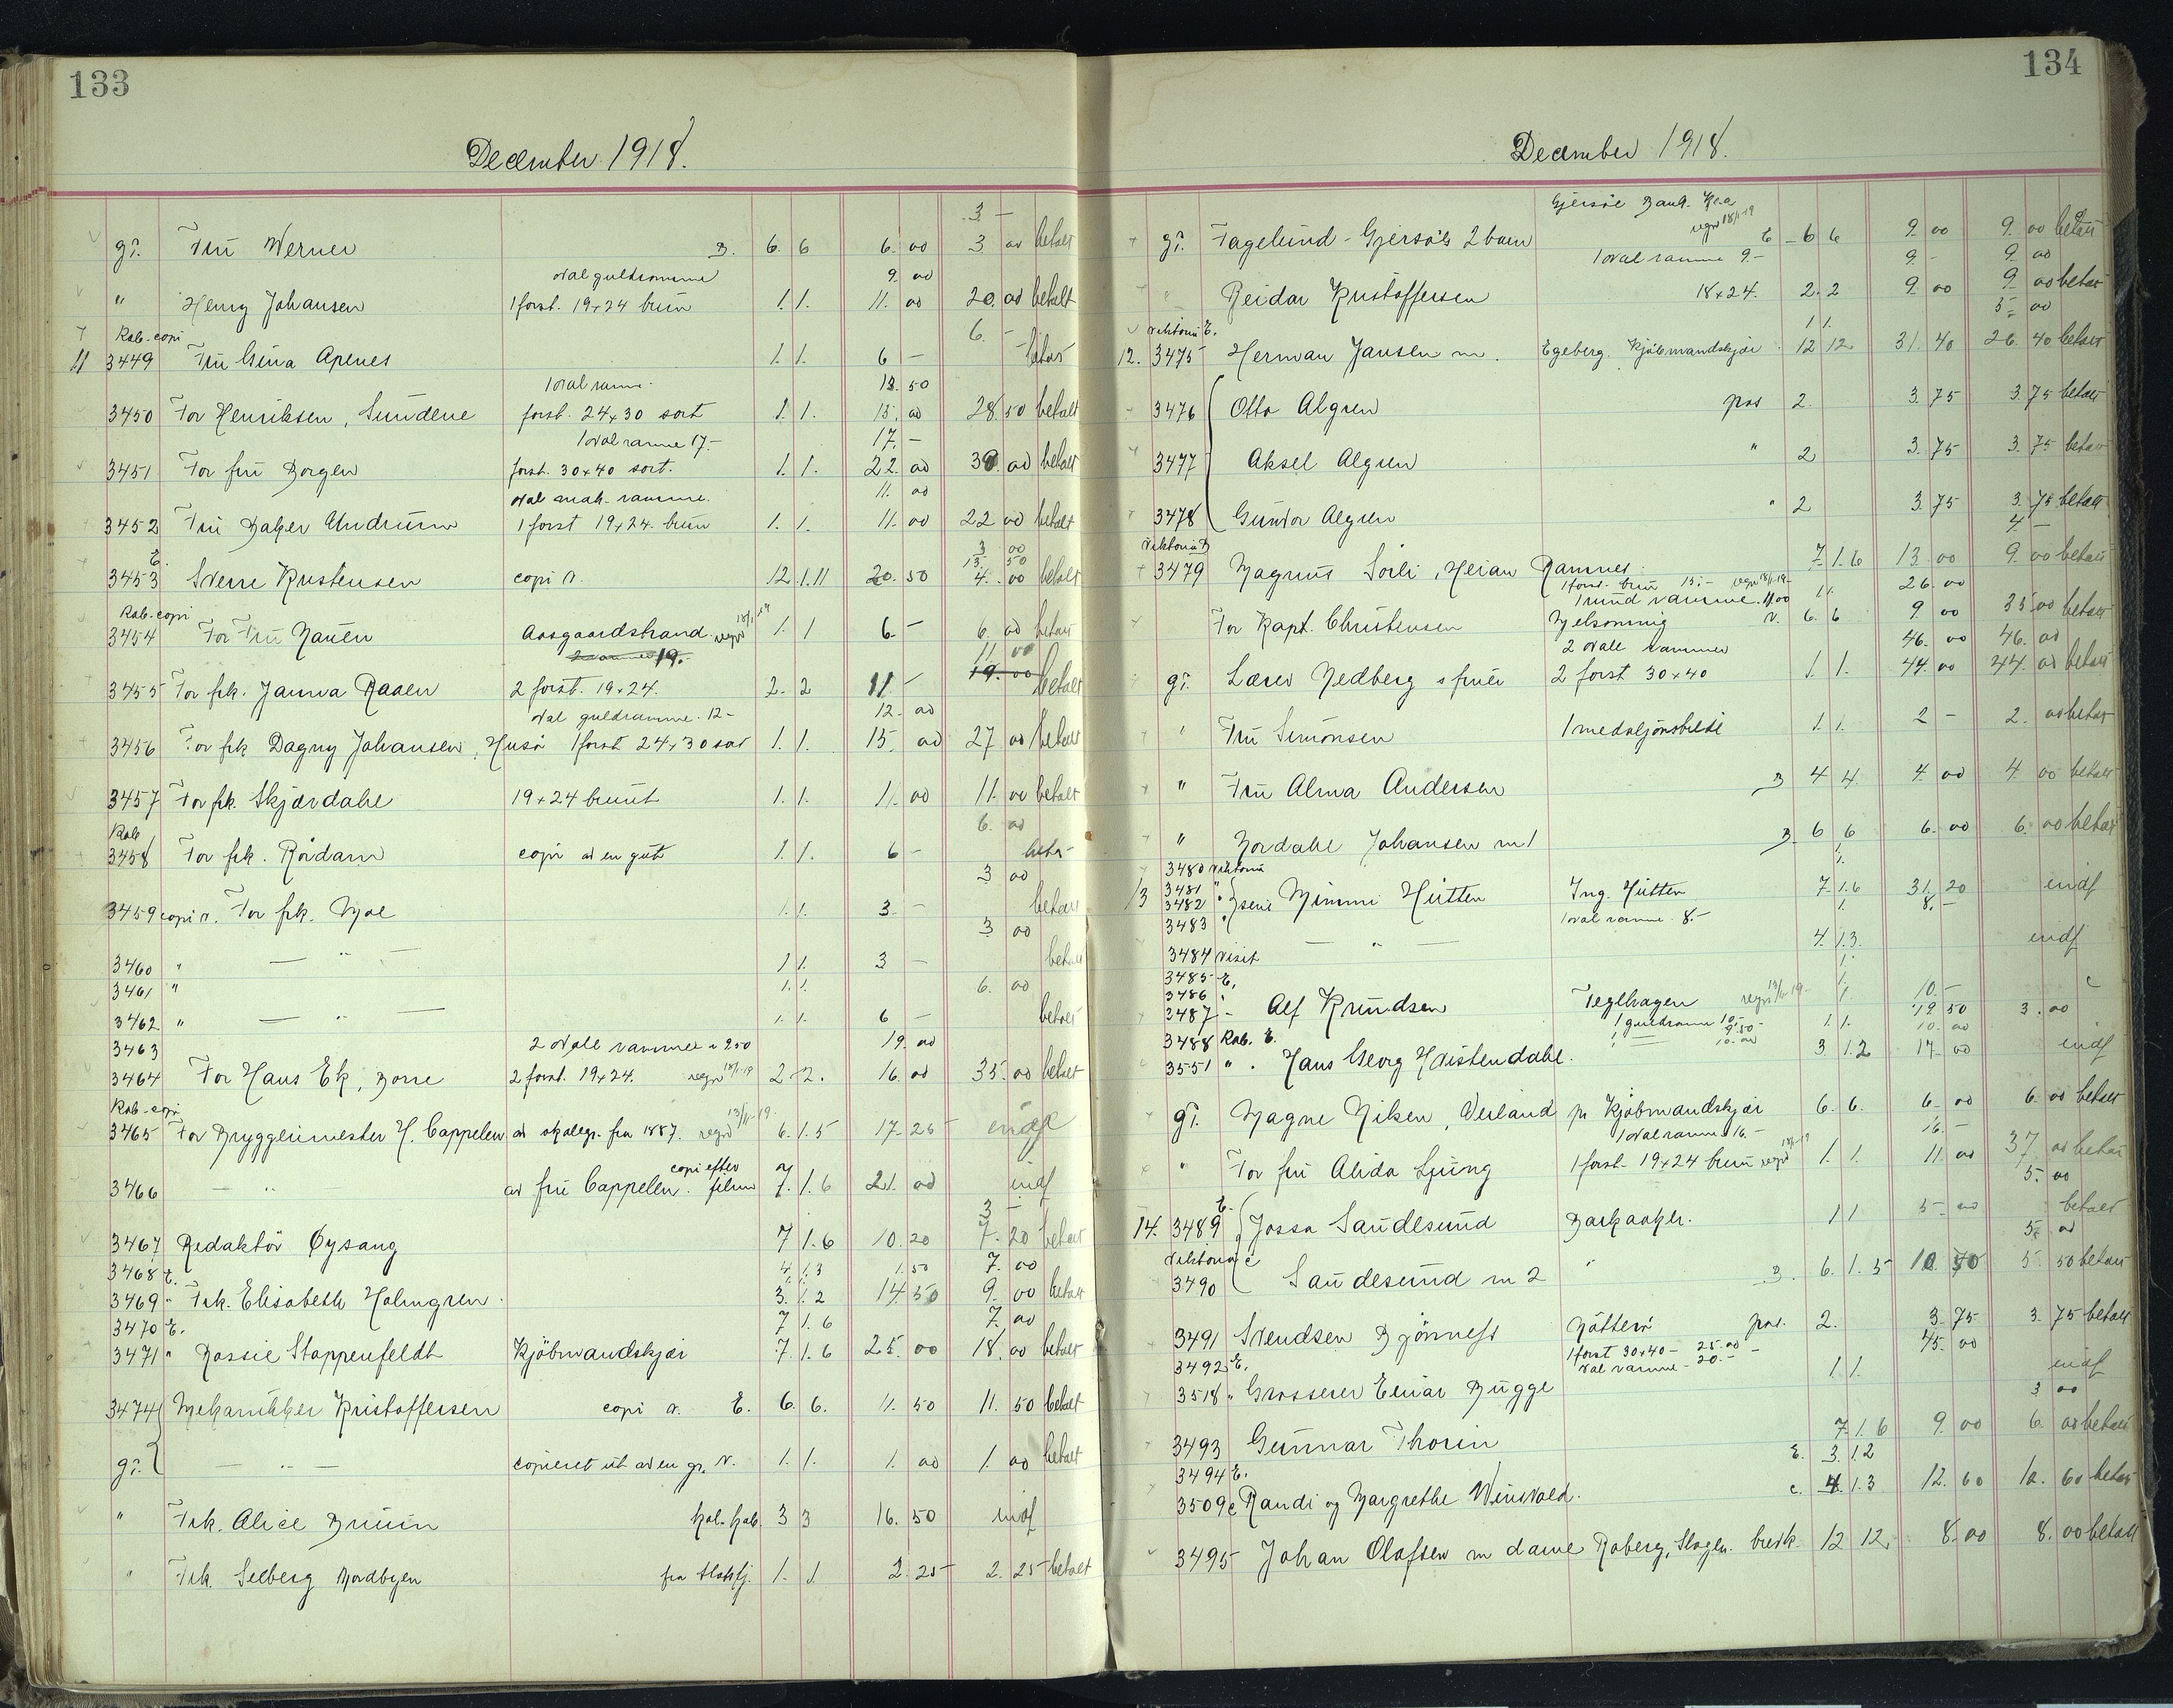 133
December 1918.
3 –
gi. Fru Werner B. 6. 6 6. 00 3. 00 betalt
oval guldramme 9. 00
" Henry Johansen 1 forst. 19x24 brun 1. 1. 11. 00 20. 00 betalt
Kab-copi 6. –
11 3449 Fru Gina Apenes 1. 1. 6 – betalt
1 oval ramme. 13. 50
3450 For Henriksen, Sundene forst. 24x30 sort 1. 1. 15. 00 28. 50 betalt
1 oval ramme 17.– 17. –
3451 For fru Borgen forst. 30x40 sort. 1. 1. 22. 00 39. 00 betalt
oval mah. ramme. 11. 00
3452 Fru Baker Undrum 1 forst 19x24. brun 1. 1. 11. 00 22 00 betalt
E. 3 00
13. 50
3453 Sverre Kristensen copi v. 12. 1. 11 20. 50 4. 00 betalt
Kab-copi
3454 For Fru Bauen Aasgaardstrand. regn 13/1-19 1. 1 6. – 6. 00 betalt
2 rammer 19. – 11. 00
3455 For frk. Janna Raaen 2 forst. 19x24. 2. 2 11. – 19. 00 betalt
oval guldramme. 12– 12– 00
3456 For frk Dagny Johansen, Husø 1 forst 24x30 sort 1. 1. 15. 00 27 00 betalt
3457 For frk. Skjærdahl 19x24 brunt 1. 1. 11. 00 11. 00 betalt
Kab 6. 00
3458 For frk. Rödam copi av en gut 1. 1. 6 – betalt
3 00
3459 copi v. For frk. Moe 1. 1. 3. – betalt
3 00
3460 " — " — 1 1. 3 – betalt
3461 " 1. 1. 6. 00
3462 " — " — 1. 1. 6 – betalt
3463 2 ovale rammer a 9.50 19. 00
3464 For Hans Ek, Borre 2 forst. 19x24. regn 13/1-19 2 2. 16. 00 35. 00 betalt
Kab-copi
3465 For Bryggerimester H. Cappelen av skolegr. fra 1887. regn 13/1-19. 6. 1. 5 17. 25 indf
copi efter
3466 — " av fru Cappelen. film 7. 1. 6 21. 00 indf
3 –
3467 Redaktör Øysang 7 1. 6 10. 20 7. 20 betalt
3468 E. 4. 1. 3 1. 50 7. 00
3469 " Frk. Elisabeth Holmgren. 3. 1. 2 14 50 9. 00 betalt
3470 E. 7 1. 6 7. 00
3471 " Rassie Stoppenfeldt Kjöbmandskjær 7. 1. 6 25. 00 18. 00 betalt
3474 Mekanikker Kristoffersen copi v. E. 6. 6. 11. 50 11. 50 betalt
gi. — " — copieret ut av en gr. v. 1. 1. 1. 00 1. 00 betalt
" Frk. Alice Bruun kol. kab. 3 3 16. 50 indf
" Frk. Seeberg Nordbyen fra Slottsfj. 1. 1. 2. 25 2. 25 betalt
134
December 1918.
Gjersöe Bank. Kra
regn 18/1-19
gi. Fagelund-Gjersöe's 2 barn E – 6 6 9. 00 9. 00 betalt
1 oval ramme 9– 9 – 9. 00
Reidar Kristoffersen 18x24. 2. 2 9. 00 9. 00 betalt
Viktoria E. 1 1. 5. 00
12. 3475 Herman Jansen m. Egeberg. Kjöbmandskjær. 12 12 31. 40 26. 40 betalt
3476 Otto Algren pos 2. 3. 75 3. 75 betalt
3477 Aksel Algren " 2 3. 75 3. 75 betalt
3478 Gunvor Algren " 2 3. 75 3. 75 betalt
Viktoria B 4. –
3479 Magnus Soili, Heian Ramnes. 7. 1. 6 13. 00 9. 00 betalt
1 forst. brun 15.– regn 18/1-19– 1 1. 26. 00
1 rund ramme. 11.00
For Kapt. Christensen Mjelsonvig v. 6. 6 9. 00 35 00 betalt
2 ovale rammer 46. 00 46. 00
gi. Lærer Hedberg & frue 2 forst 30x40 1. 1. 44. 00 44. 00 betalt
" Fru Simonsen 1 medaljonsbilde 1. 1. 2 – 2. 00 betalt
" Fru Alma Andersen B 4 4. 4. 00 4. 00 betalt
" Nordahl Johansen m 1 B. 6 6 6. 00 6. 00 betalt
3480 Viktoria 1.
13 3481 "
3482 " serie Mimmi Hütten Ing. Hütten 7 1. 6 31. 20 indf
3483 " 1 oval ramme. 8.– 1. 8. –
3484 visit — " — 4. 1. 3. indf
3485 E. 1.
3486 "
3487 – Alf Knudsen Teglhagen regn 13/1-19– 1 10.– 19 50 3. 00
3488 Kab. E. 1 guldramme 10.– 1. 1. 10. 00
3551 " . Hans Georg Hvistendahl. 3 1. 2 17. 00 indf
gi. Magne Nilsen, Verland pr Kjöbmandskjær 6. 6. 6. 00 6. 00 betalt
1 oval ramme 16. – 16. –
" For fru Alida Ljung 1 forst– 19x24 brun regn 13/1-19 1. 1. 11. 00 37 00 betalt
E. 5. 00
14. 3489 Jossa Sandesund Barkaaker. 1 1 5. 00 betalt
Viktoria E 5. 00
3490 Sandesund m 2 " B. 6. 1. 5 10. 50 5. 50 betalt
3491 Svendsen Bjönness Nötterö pos. 2. 3. 75 3. 75 betalt
3492 E. 1 forst 30x40– 25.00 – 45. 00
oval ramme – 20.– 1 1. indf
3518 " Grosserer Einar Bugge
3 00
3493 Gunnar Thorin 7. 1. 6 9. 00 6. 00 betalt
3494 E. E. 3. 1. 2
3509 E Randi og Margrethe Winsvold. c. 4. 1. 3 12. 60 12. 60 betalt
3495 Johan Olafsen m dame Roberg, Slagen. brevk. 12 12. 8. 00 8. 00 betalt